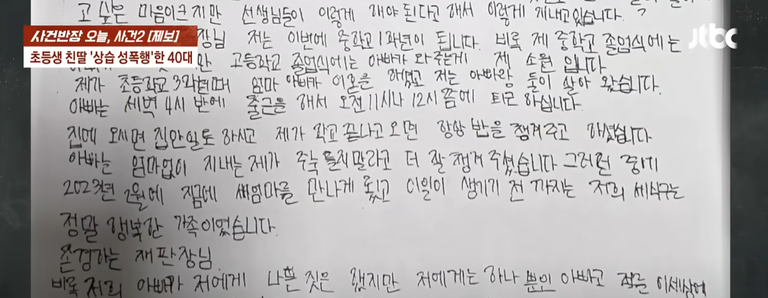 고 싶은 마음이크지만 선생님들이 이렇게 해야 된다고 해서 이렇게 지내고있습니다.
사건반장 오늘, 사건2 [제보]
초등생 친딸 '상습 성폭행'한 40대
jtbc
장님 저는 이번에 중학교 1학년이 됩니다. 비록 제 중학교 졸업식에는
고등학교 졸업식에는 아빠가 와주는게 제 소원 입니다
제가 초등학교 3학년때 엄마 아빠가 이혼을 하였고 저는 아빠랑 둘이 살아 왔습니다.
아빠는 새벽 4시 반에 출근을 해서 오전 11시나 12시 쯤에 퇴근 하십니다.
집에 오시면 집안일도 하시고 제가 학교 끝나고 오면 항상 밥을 챙겨주고 하셨습니다
아빠는 엄마없이 지내는 제가 주눅 들지말라고 더 잘 챙겨 주셨습니다 그러던 중에
2023년 2월에 지금에 새엄마를 만나게 됬고 이일이 생기기 전 까지는 저희 세식구는
정말 행복한 가족이었습니다.
존경하는 재판장님
비록 저희 아빠가 저에게 나쁜 짓은 했지만 저에게는 하나 뿐인 아빠고 저를 이세상에